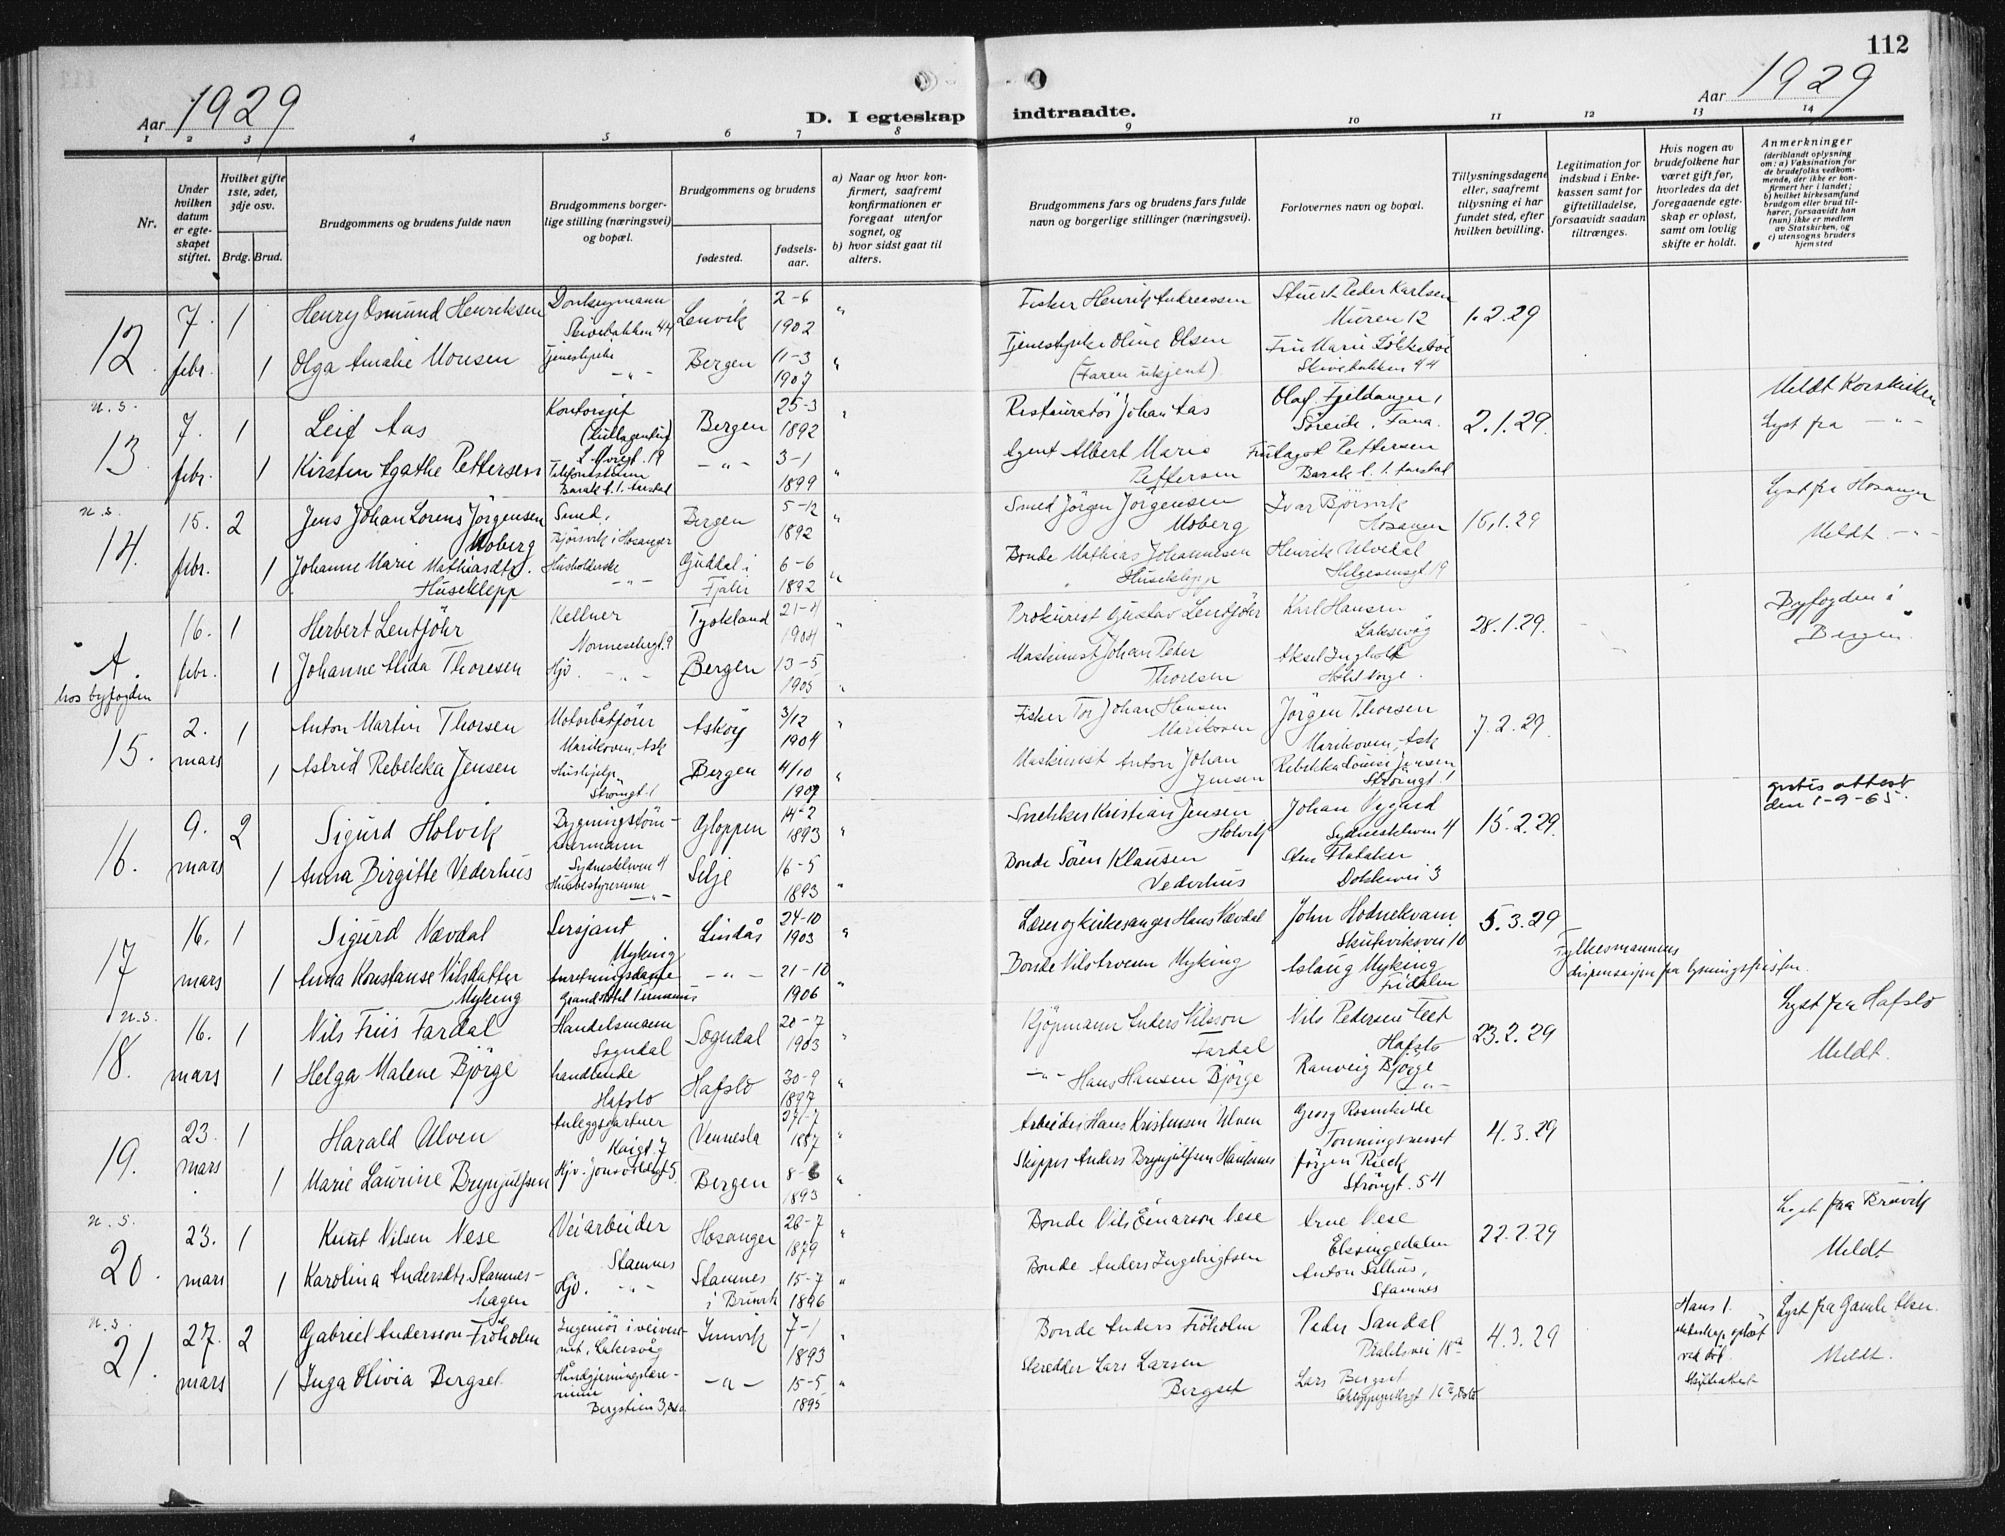 112
Aar 1929
D. I egteskap indtraadte.
Aar 1929
1 2 3 4 5 6 7 8 9 10 11 12 13 14
Nr.
Under hvilken datum er egteskapet stiftet.
Hvilket gifte 1ste, 2det, 3dje osv.
Brdg. Brud.
Brudgommens og brudens fulde navn
Brudgommens borgerlige stilling (næringsvei) og bopæl.
Brudgommens og brudens
fødested.
fødselsaar.
a) Naar og hvor konfirmert, saafremt konfirmationen er foregaat utenfor sognet, og
b) hvor sidst gaat til alters.
Brudgommens fars og brudens fars fulde navn og borgerlige stillinger (næringsvei).
Forlovernes navn og bopæl.
Tillysningsdagene eller, saafremt tillysning ei har fundet sted, efter hvilken bevilling.
Legitimation for indskud i Enkekassen samt for giftetilladelse, forsaavidt saadan tiltrænges.
Hvis nogen av brudefolkene har været gift før, hvorledes da det foregaaende egteskap er opløst, samt om lovlig skifte er holdt.
Anmerkninger
(deriblandt oplysning om: a) Vaksination for de brudefolks vedkommende, der ikke er konfirmert her i landet; b) hvilket kirkesamfund brudgom eller brud tilhører, forsaavidt han (hun) ikke er medlem av Statskirken, og c) utensogns bruders hjemsted
12 7. febr. 1 Henry Osmund Henriksen Skivebakken 44 Lenvik 2-6 1902 " Fisker Henrik Andreassen Peder Karlsen Muren 12 1.2.29
1 Olga Amalie Monsen Tjenestepike -"- Bergen 11-3 1907 " Tjenestepike Oline Olsen (Faren ukjent) Fru Marie Skivebakken 44
u.s.
13 7. febr. 1 Leif Aas Kontorsjef Bergen 25-3 1892 " Restauratør Johan Aas Olaf Fjeldanger, Søreide, Fana. 2.1.29. Meldt Korskirken
1 Kirsten Agathe Pettersen -"- 3-1 1899 " Agent Albert Marie Pettersen Pettersen Lyst fra -"-
u.s.
14. 15. febr. 2 Jens Johan Lorens Jörgensen Moberg Smed, Bjørsvik i Hosanger Bergen 5-12 1892 " Smed Jörgen Jörgensen Moberg Ivar Bjørsvik Hosanger 16.1.29 Lyst fra Hosanger
1 Johanne Marie Mathiasdtr. Huseklepp Husholderske -"- Guddal i Fjaler 6-6 1892 " Bonde Mathias Johannesen Huseklepp Henrik Ulvedal Helgesensgt 19 Meldt -"-
A. hos byfogden 16. febr. 1 Herbert Lentföhr Kellner Nonnesetergt. 9 Tyskland 21-4 1904 " Prokurist Gustav Lentföhr Karl Hansen Laksevåg 28.1.29. Byfogden i Bergen.
1 Johanne Alida Thoresen Hjv. -"- Bergen 13-5 1905 " Maskinist Johan Peder Thoresen Aksel
15. 2. mars 1 Anton Martin Thorsen Motorbåtfører Marikoven, Ask Askøy 3/12 1904 " Fisker Tor Johan Hansen Marikoven Jörgen Thorsen Marikoven, Ask 7.2.29.
1 Astrid Rebekka Jensen Hushjelp Strømgt. 1 Bergen 4/10 1907 " Maskinist Anton Johan Jensen Rebekka Louise Jensen Strömgt 1
gratis attest den 1-9-65.
16. 9. mars 2 Sigurd Holvik Bygningstømmermann Sydneskleven 4 Gloppen 14-2 1893 " Snekker Kristian Jensen Holvik Johan Nygård Sydneskleven 4 15.2.29.
1 Anna Birgitte Vederhus Husbestyrerinne -"- Selje 16-5 1893 " Bonde Sören Klausen Vederhus Sten Flataker Dokkevei 3
17 16. mars 1 Sigurd Nævdal Sersjant Myking Lindås 24-10 1903 " Lærer og kirkesanger Hans Nævdal John Hodnekvam Skuteviksvei 10 5.3.29 Fylkesmannens dispensasjon fra lysningsfristen.
1 Anna Konstanse Nilsdatter Myking Anretningsdame Grand Hotel Terminus -"- 21-10 1906 " Bonde Nils Myking Aslaug Myking Fridalen
u.s.
18. 16. mars 1 Nils Friis Fardal Handelsmann Sogndal Sogndal 20-7 1903 " Kjöpmann Anders Nilsson Fardal Nils Pedersen Teet Hafslo 23.2.29 Lyst fra Hafslo
1 Helga Malene Björge handlende Hafslo Hafslo 30-9 1897 " -"- Hans Hansen Björge Ranveig Björge -"- Meldt.
19. 23. mars 1 Harald Ulven Anleggsgartner Kaigt. 7 Vennesla 27-7 1887 " Arbeider Hans Kristensen Ulven Georg Rosenkilde Tonningsneset 4.3.29
1 Marie Laurine Brynjulfsen Hjv. Bergen 8-6 1893 " Skipper Anders Brynjulfsen Jørgen Rieck Strömgt. 54
u.s.
20. 23. mars 1 Knut Nilsen Nese Veiarbeider Stamnes Hosanger 26-7 1879 " Bonde Nils Einarson Nese Arne Nese Eksingedalen 22.2.29 Lyst fra Bruvik
1 Karolina Andersdtr Stamneshagen Hjv. -"- Stamnes i Bruvik 15-7 1896 " Bonde Anders Ingebrigtsen Anton Salhus, Stamnes Meldt
u.s.
21. 27. mars 2 Gabriel Andersson Fröholm Ingeniör i veivesenet, Laksevåg Innvik 7-1 1893 " Bonde Anders Fröholm Peder Sandal 18a 4.3.29 Hans 1. ekteskap oplöst ved död. Skifteattest Lyst fra Gamle Aker.
1 Inga Olivia Bergset Håndgjerningslærerinne Bergstien 3, Oslo -"- 15-5 1895 " Skredder Lars Larsen Bergset Lars Bergset Meldt.